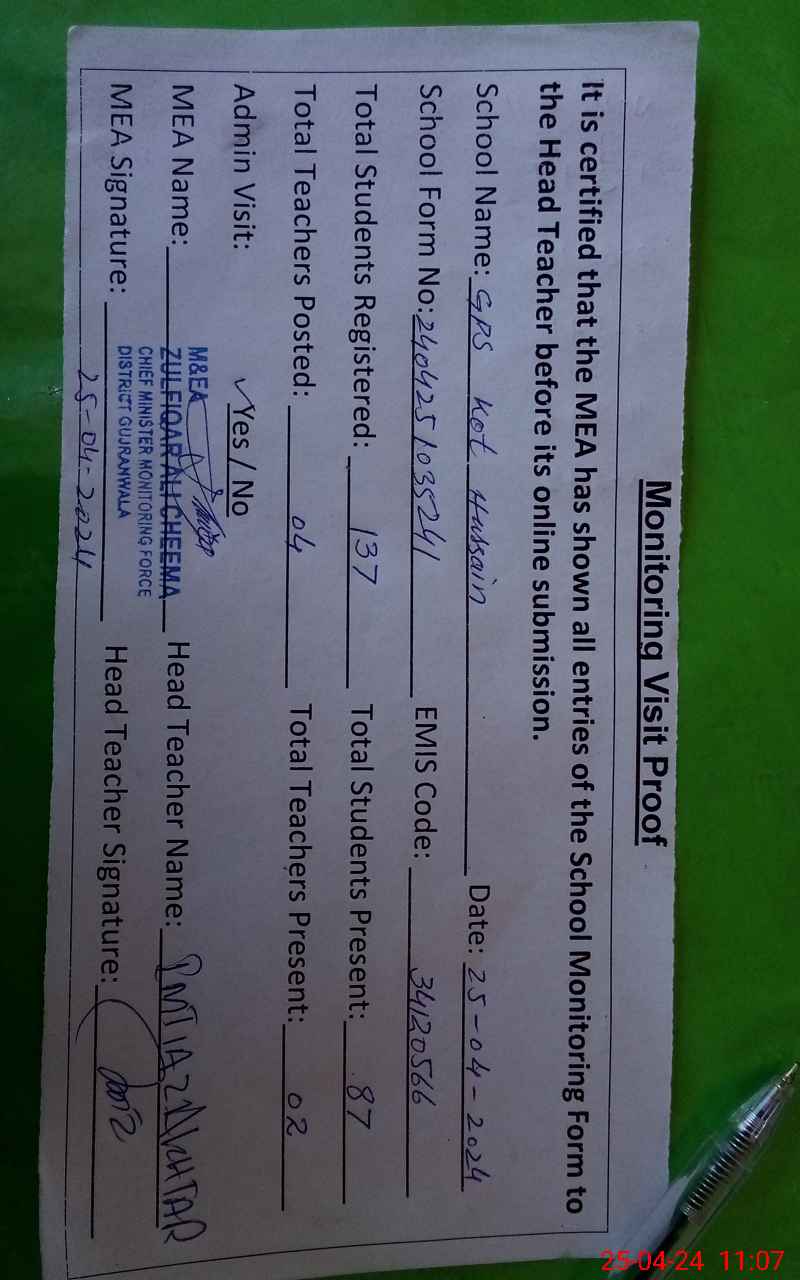 Monitoring Visit Proof
It is certified that the MEA has shown all entries of the School Monitoring Form to
the Head Teacher before its online submission.
School Name: GPS Kot Hussain Date: 25-04-2024
School Form No: 2404251035241 EMIS Code: 34120566
Total Students Registered: 137 Total Students Present: 87
Total Teachers Posted: 04 Total Teachers Present: 02
Admin Visit: ✓Yes / No
MEA Name: M&EA ZULFIQAR ALI CHEEMA Head Teacher Name: IMTIAZ AKHTAR
CHIEF MINISTER MONITORING FORCE
DISTRICT GUJRANWALA
MEA Signature: Head Teacher Signature:
25-04-2024
25-04-24 11:07